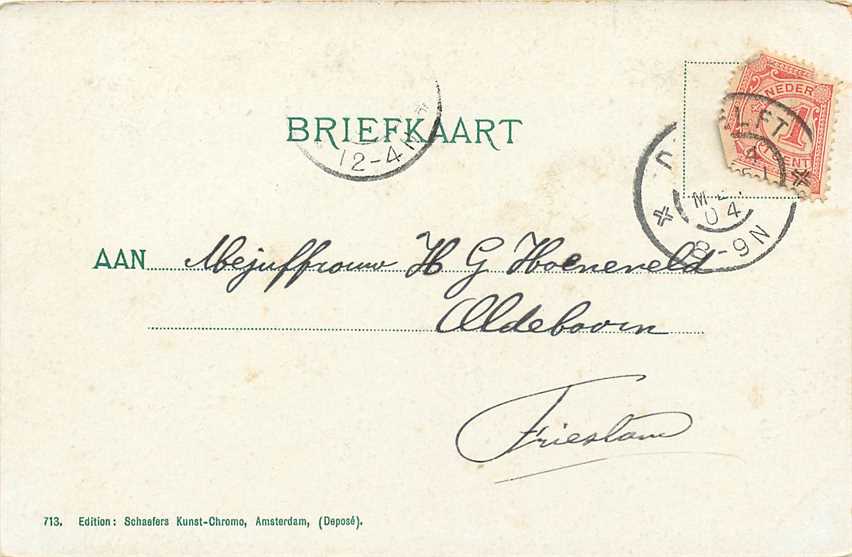 BRIEFKAART
12-4N
NEDER
1
CENT
DELFT
4
MEI
04
8-9N
AAN Mejuffrouw H G Hoeneveld
Oldeboorn
Friesland
713. Edition: Schaefers Kunst-Chromo, Amsterdam, (Deposé).